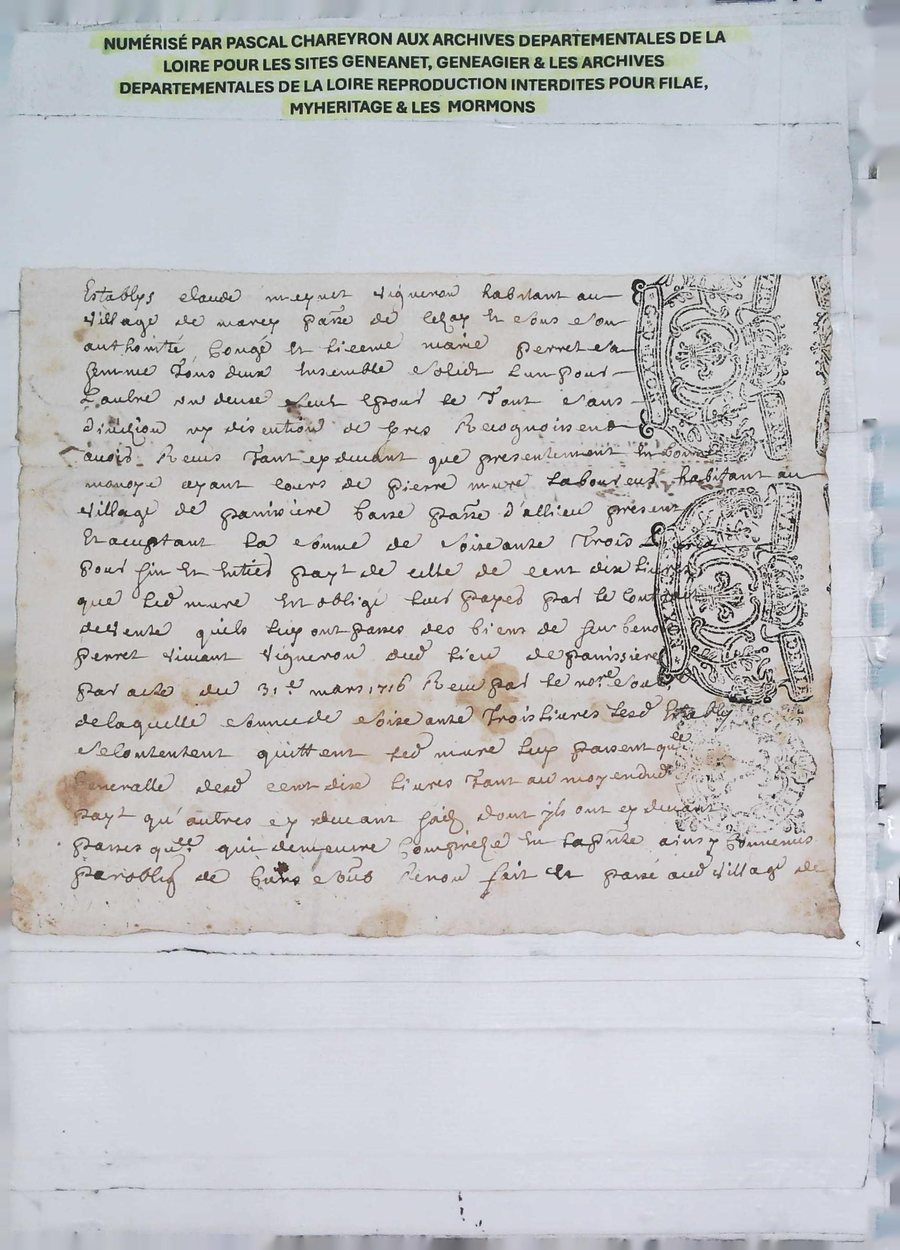 NUMÉRISÉ PAR PASCAL CHAREYRON AUX ARCHIVES DEPARTEMENTALES DE LA
LOIRE POUR LES SITES GENEANET, GENEAGIER & LES ARCHIVES
DEPARTEMENTALES DE LA LOIRE REPRODUCTION INTERDITES POUR FILAE,
MYHERITAGE & LES MORMONS
Establys claude meynet vigneron habitant au
village de marcy parre de et sous son
authorité, congé et licence marie perret sa
femme tous deux ensemble solidt lun pour
Laultre un deux seul et pour le Tout sans
division ny discution de gres Recognoissent
avoir Receus Tant cy devant que presentement en bonne
monoye ayant cours de pierre mure laboureur habitant au
village de panisiere basse parre d'allieu present
Et aceptant La somme de soixante Trois Livres
pour fin et entier payt de celle de cent dix Livres
que led mure Est obligé Leur payer par le contrat
de vente quils luy ont passes des biens de feu benoi
perret vivant vigneron dud lieu de panissiere
par acte du 31e mars 1716 Receu par le nore sous
de laquelle somme de soixante Trois Livres Lesd Establys
se contentent quittent led mure luy passent que
Generalle desd cent dix Livres Tant au moyen dud
payt qu'autres cy devant faits dont ils ont cy devant
passes qui demeure comprise en la pnte ainsy convenus
par oblig de biens soub Renon fait et passé aud village de